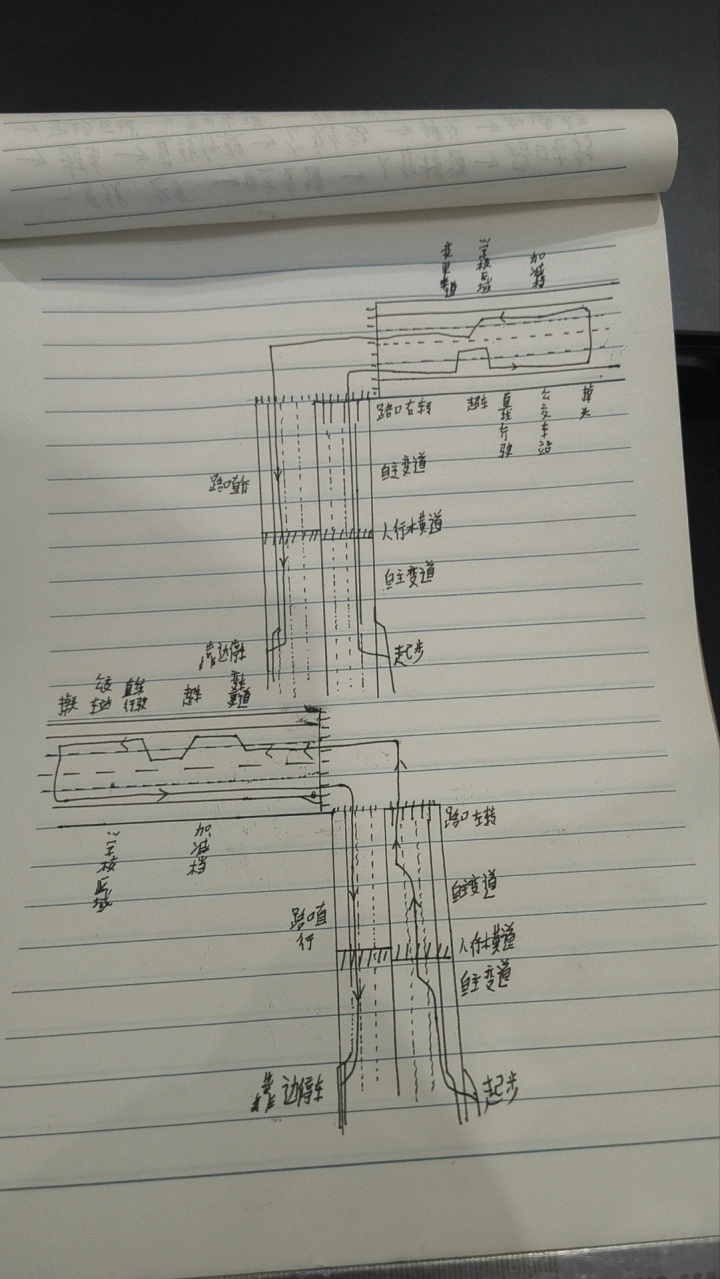 变更车道
学校区域
加减挡
路口右转
超车
直线行驶
公交车站
掉头
路口直行
自主变道
人行横道
自主变道
靠边停车
起步
掉头
公交车站
直线行驶
超车
变更车道
学校区域
加减挡
路口左转
自主变道
路口直行
人行横道
自主变道
靠边停车
起步